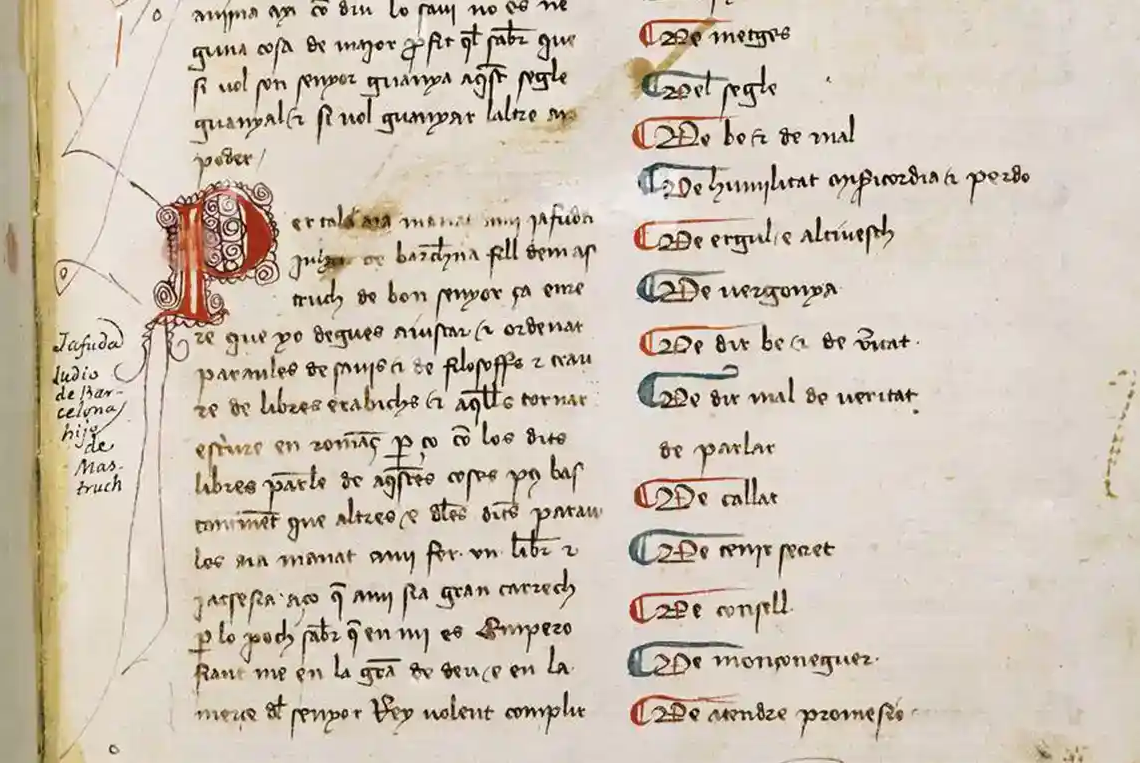 anima axi com diu lo savi no es ne
guna cosa de major profit ql sabr que
si vol son senyor guanya aqst segle
guanyal e si vol guanyar laltre an
poder
Per tal
aia manat ami jafuda
juheu de barchna fill dem as
truch de bon senyor ça enre
re que yo degues aiustar e ordenar
paraules de savis e de filosoffs e trau
re de libres erabichs e aqlls tornar
escriure en romāç p ço cō los dits
libres parle de aqstes coses pus bas
tantmēt que altres e dles dits parau
les aia manat ami fer un libr e
jatsesia aço q ami sia gran carrech
p lo poch sabr q en mi es Empero
fiant me en la grā de deu e en la
merce dl senyor Rey volent complir
Jafuda
Iudio
de Bar-
celona
hijo
de
Mas-
truch
De metges
Del segle
De be e de mal
De humilitat misericordia e perdo
De ergul e altivesh
De vergonya
De dir be e de v̄itat
De dir mal de veritat
de parlar
De callar
De tenir secret
De consell
De monçoneguer
De atendre promesio